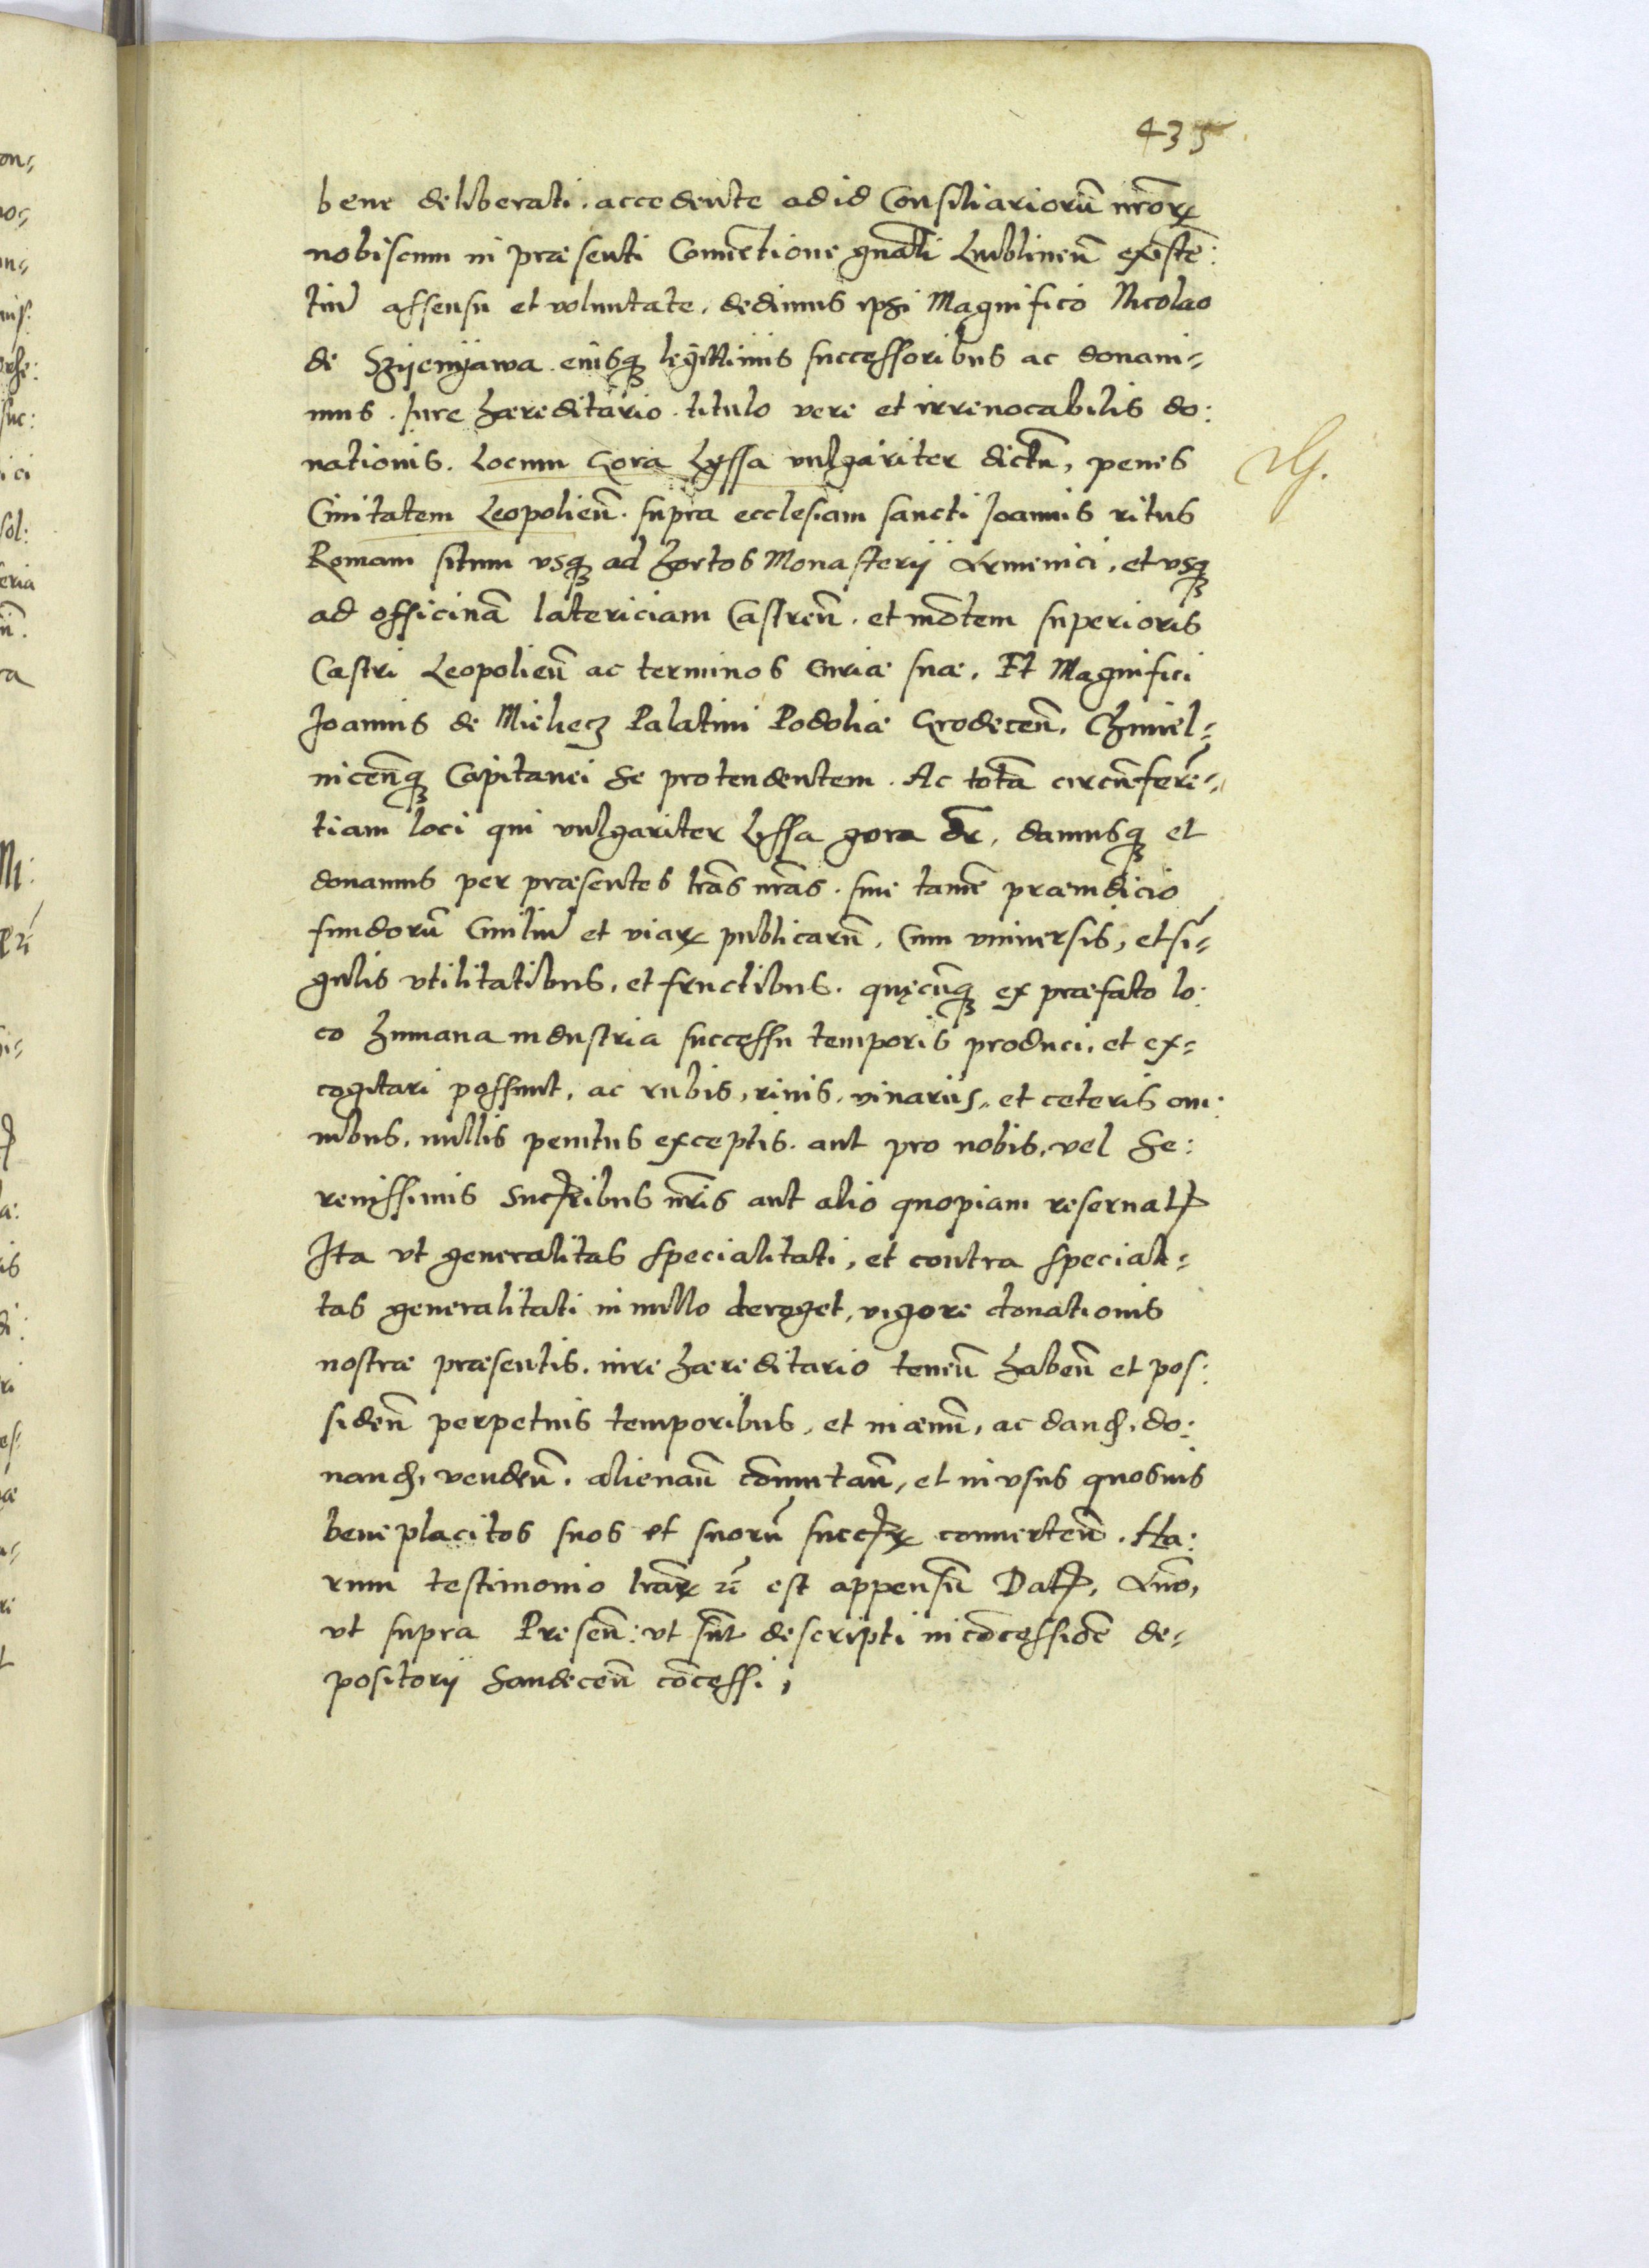 435
bene deliberati. accedente ad id Consiliariorū nr̄orꝝ
nobiscum in præsenti Conuētione gnāli Lublineñ existē:
tiū assensu et voluntate, dedimus ipsi Magnifico Nicolao
de Szijenijawa. eiusqꝫ legittimis successoribus ac donaui-
mus. Iure hæreditario. titulo vere et irreuocabilis do:
nationis. Locum Gora Lyssa vulgariter dictū, penes
Ciuitatem Leopolieñ. supra ecclesiam sancti Joannis ritus
Romani situm vsqꝫ ad hortos Monasterij Armenici, et vsqꝫ
ad officinā latericiam Castreñ. et mōtem superioris
Castri Leopolieñ ac terminos Curiæ suæ, Et Magnifici
Joannis de Mielecz Palatini Podoliæ Grodeceñ, Chmiel-
niceñqꝫ Capitanei se protendentem. Ac totā circūferē-
tiam loci qui vulgariter Lyssa gora dr̄, damusqꝫ et
donamus per præsentes lr̄as nr̄as. sine tamē præiudicio
fundorū Ciuiliū et viarꝝ publicarū, Cum vniuersis, et sī-
gulis vtilitatibus, et fructibus. quęcūqꝫ ex præfato lo:
co humana industria successu temporis produci, et ex-
cogitari possunt, ac rubis, riuis, vinariis, et ceteris om:
nibus, nullis penitus exceptis. aut pro nobis, vel Se:
renissimis Succribus nr̄is aut alio quopiam reseruat
Ita vt generalitas specialitati, et contra speciali-
tas generalitati in nullo deroget, vigore donationis
nostræ præsentis. iure hæreditario teneñ habeñ et pos:
sideñ perpetuis temporibus, et in æuum, ac dand, do:
nand, vendeñ, alienañ cōmutañ, et in vsus quosuis
beneplacitos suos et suorū succrꝝ conuerteñ. Ha:
rum testimonio lr̄arꝝ est appensū Dat, Año,
vt supra Preseñ: vt sūt descripti in cōcessiōe de-
positorij Sandeceñ cōcessi,